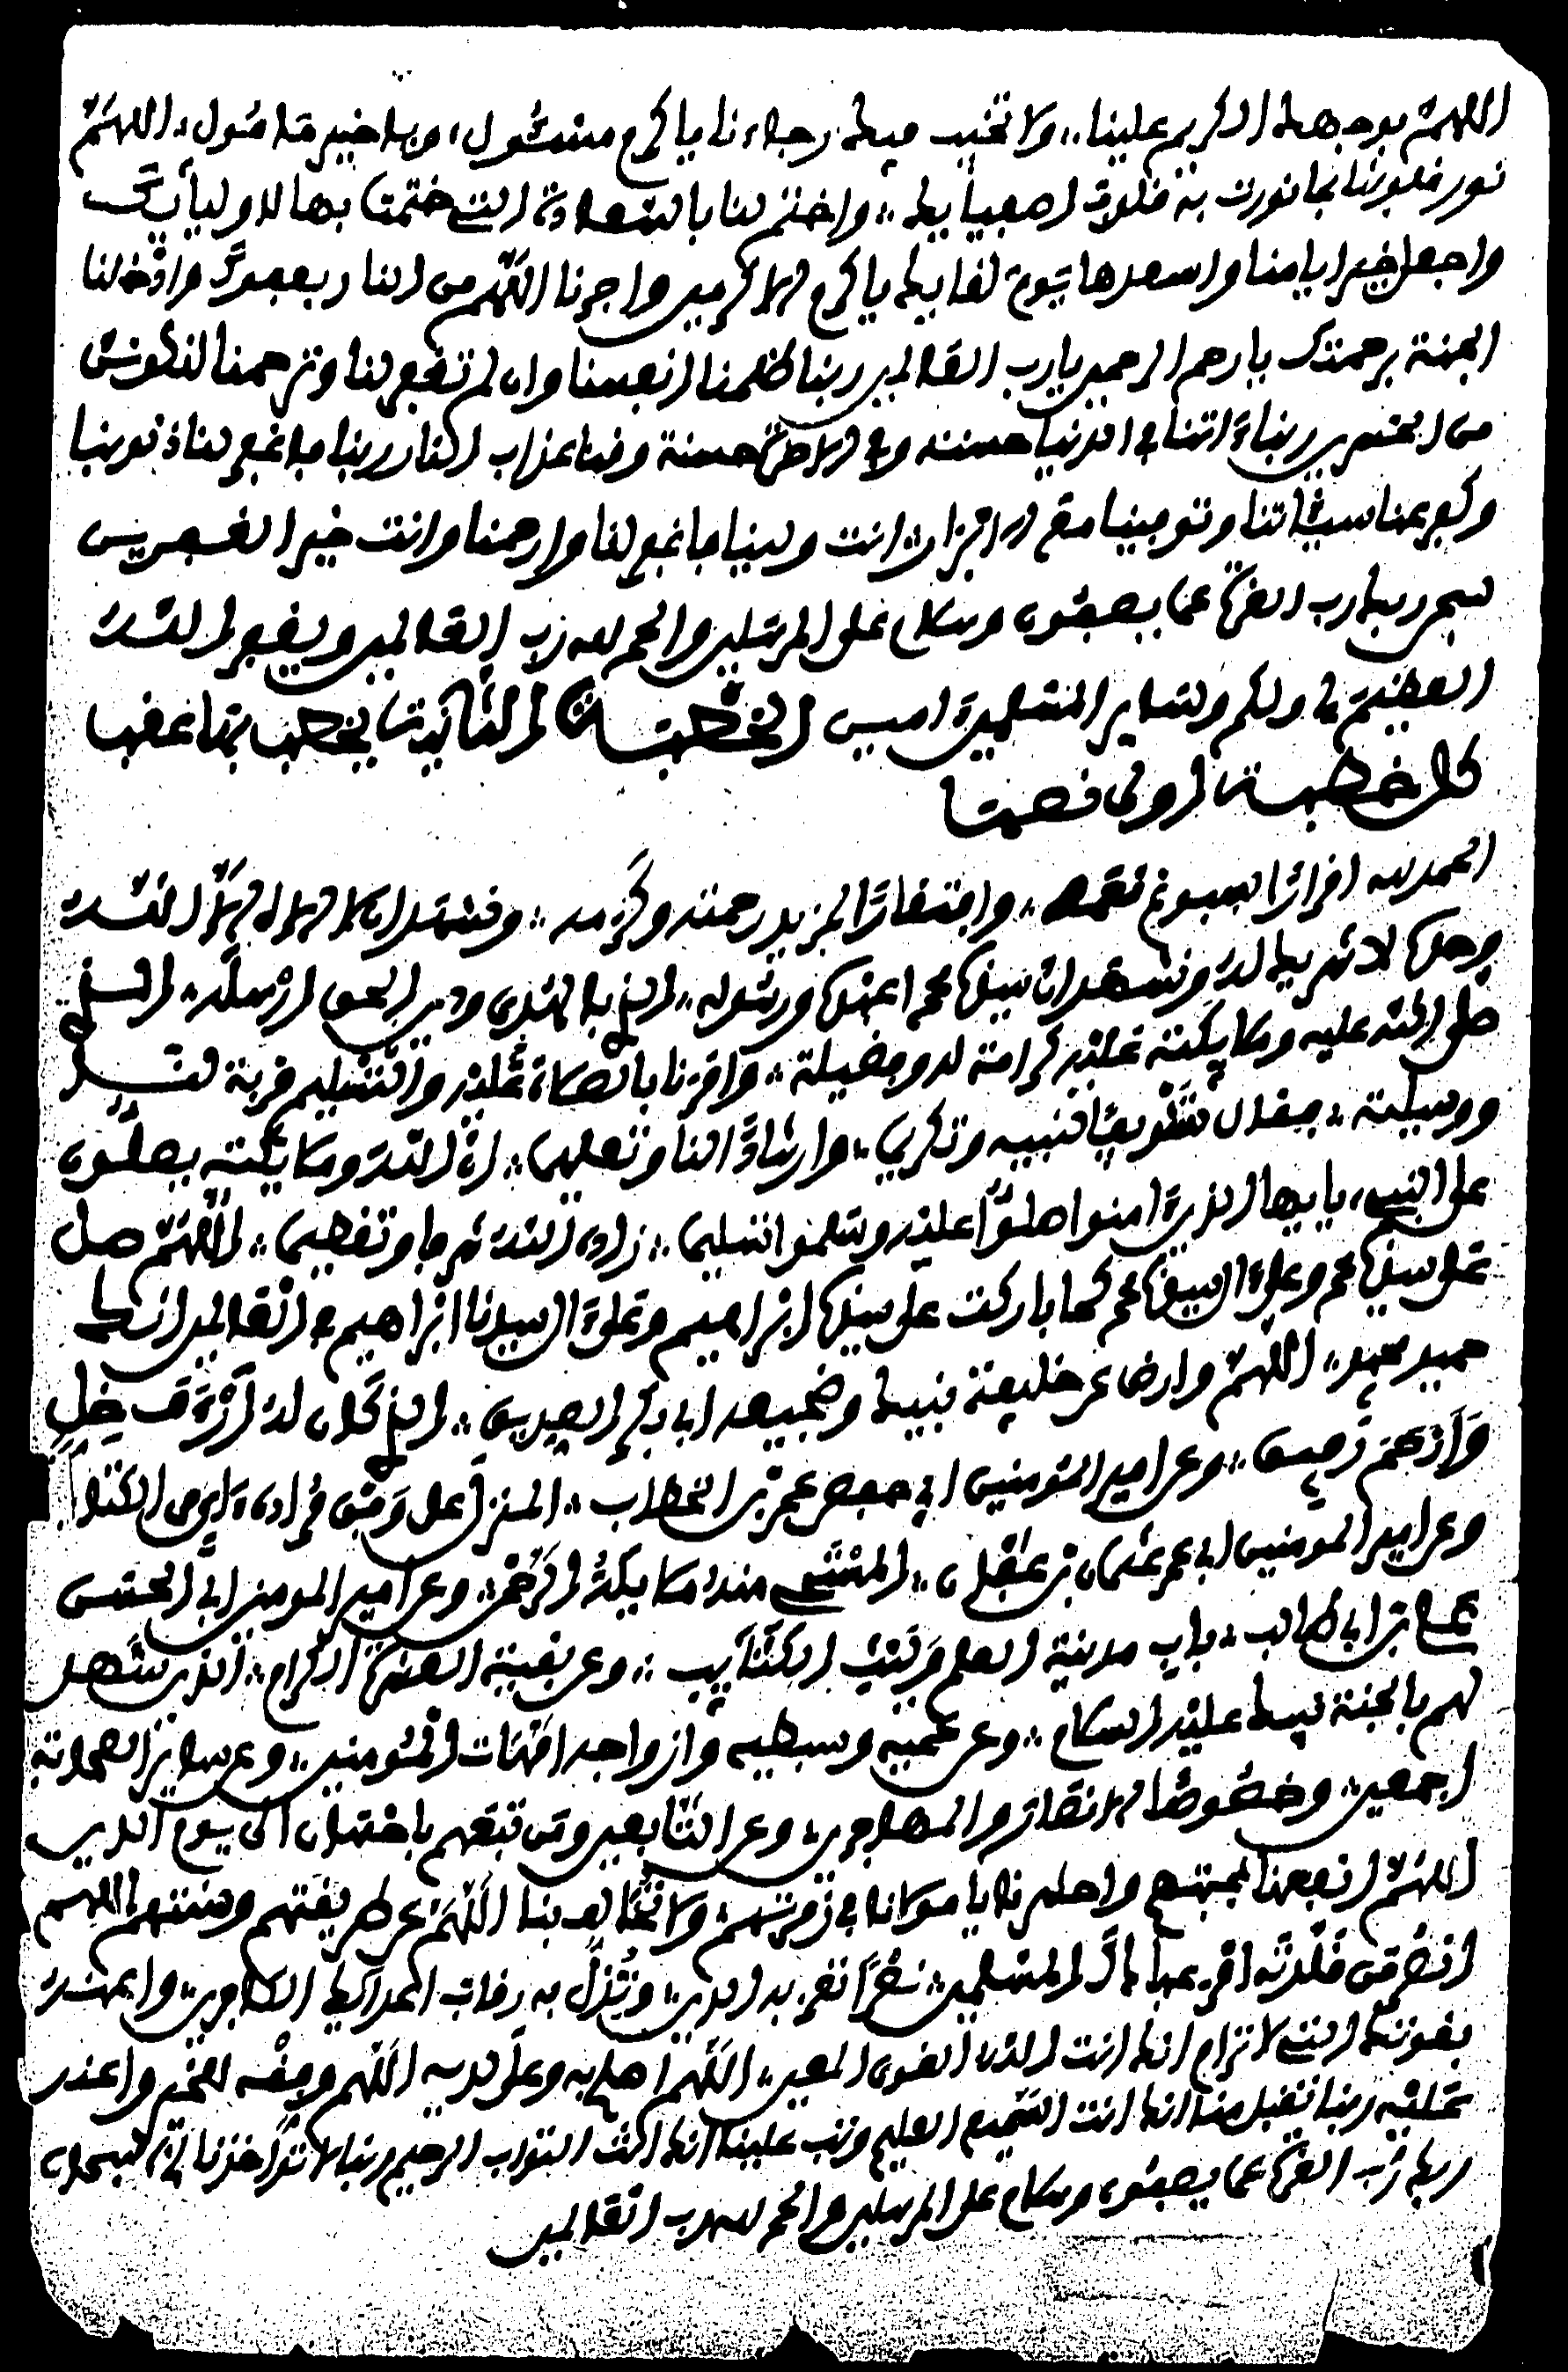 اللهم بوجهك الكريم علينا، ولا تخيب فيك رجاءنا يا أكرم مسئول، ويا خير مأمول، اللهم
نور قلوبنا بما نورت به قلوب أصفيايك، واختم لنا بالسعادة التي ختمت بها لأوليايك
واجعل خير أيامنا وأسعدها يوم لقايك يا أكرم الأكرمين وأجرنا اللهم من النار بعفوك وادخلنا
الجنة برحمتك يا ارحم الرحمين يا رب العالمين ربنا ظلمنا أنفسنا وان لم تغفر لنا وترحمنا لنكونن
من الخسرين ربنا ءاتنا في الدنيا حسنة وفي الاخرة حسنة وقنا عذاب النار ربنا فاغفر لنا ذنوبنا
وكفر عنا سيئاتنا وتوفنا مع الابرار انت ولينا فاغفر لنا وارحمنا وانت خير الغفرين
سبحن ربك رب العزة عما يصفون وسلام على المرسلين والحمد لله رب العالمين ويغفر الله
العظيم لي ولكم ولساير المسلمين امين الخطبة الثانية يخطب بها عقب
كل خطبة اولى نصها
الحمد لله اقرارا بسبوغ نعمه، وافتقارا لمزيد رحمته وكرمه، ونشهد ان لا اله الا الله
وحده لا شريك له ونشهد ان سيدنا محمدا عبده ورسوله، الذي بالهدى ودين الحق ارسله، الذي
صلى الله عليه وملايكته عليه كرامة له وفضيلة، وامرنا بالصلاة عليه والتسليم قربة لنا
ووسيلة، فقال تشريفا لنبيه وتكريما، وارشادا لنا وتعليما، ان الله وملايكته يصلون
على النبي، يايها الذين امنوا صلوا عليه وسلموا تسليما، زاده الله شرفا وتعظيما، اللهم صل
على سيدنا محمد وعلى ءال سيدنا محمد كما باركت على سيدنا ابراهيم وعلى ءال سيدنا ابراهيم في العالمين انك
حميد مجيد، اللهم وارض عن خليفة نبيك وضجيعه ابي بكر الصديق، الذي كان له أرأف خل
وأرحم رفيق، وعن امير المؤمنين ابي حفص عمر بن الخطاب، المنزل على وفق مراده ءاي من الكتاب
وعن امير المومنين ابي عمر عثمان بن عفان، المستحي منه ملايكة الرحمن، وعن امير المومنين ابي الحسن
علي بن ابي طالب، باب مدينة العلم وليث الكتايب، وعن بقية العشرة الكرام، الذين شهد
لهم بالجنة نبيك عليه السلام، وعن عميه وسبطيه وازواجه امهات المؤمنين، وعن ساير الصحابة
اجمعين، وخصوصا الانصار والمهاجرين، وعن التابعين ومن تبعهم باحسان الى يوم الدين
اللهم انفعنا بمحبتهم واحشرنا يا مولانا في زمرتهم، ولا تخالف بنا اللهم عن طريقتهم وسنتهم اللهم
انصر من قلدته امر عبادك المسلمين، نصرا تعز به الدين، وتذل به رقاب اعدائك الكافرين، وامنعه
بقوتك التي لا ترام انك انت الله القوي المعين، اللهم اصلح به وعلى يديه اللهم وفقه للخير واعنه
عليه ربنا تقبل منا انك انت السميع العليم وتب علينا انك انت التواب الرحيم ربنا لا تواخذنا الخ سبحان
ربك رب العزة عما يصفون وسلام على المرسلين والحمد لله رب العالمين